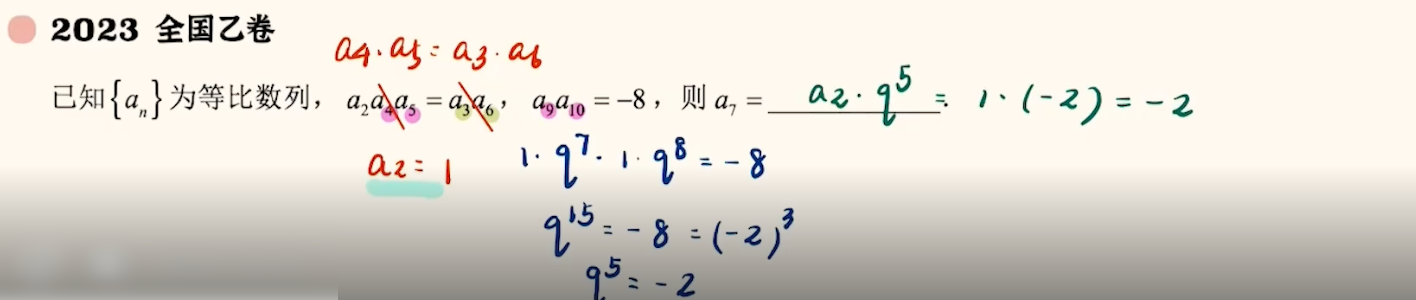 2023 全国乙卷
a4·a5=a3·a6
已知{aₙ}为等比数列，a₂a₄a₅=a₃a₆，a₉a₁₀=–8，则a₇=________ a2·q⁵ = 1·(-2)=-2
a2=1 1·q⁷·1·q⁸=-8
q¹⁵=-8=(-2)³
q⁵=-2